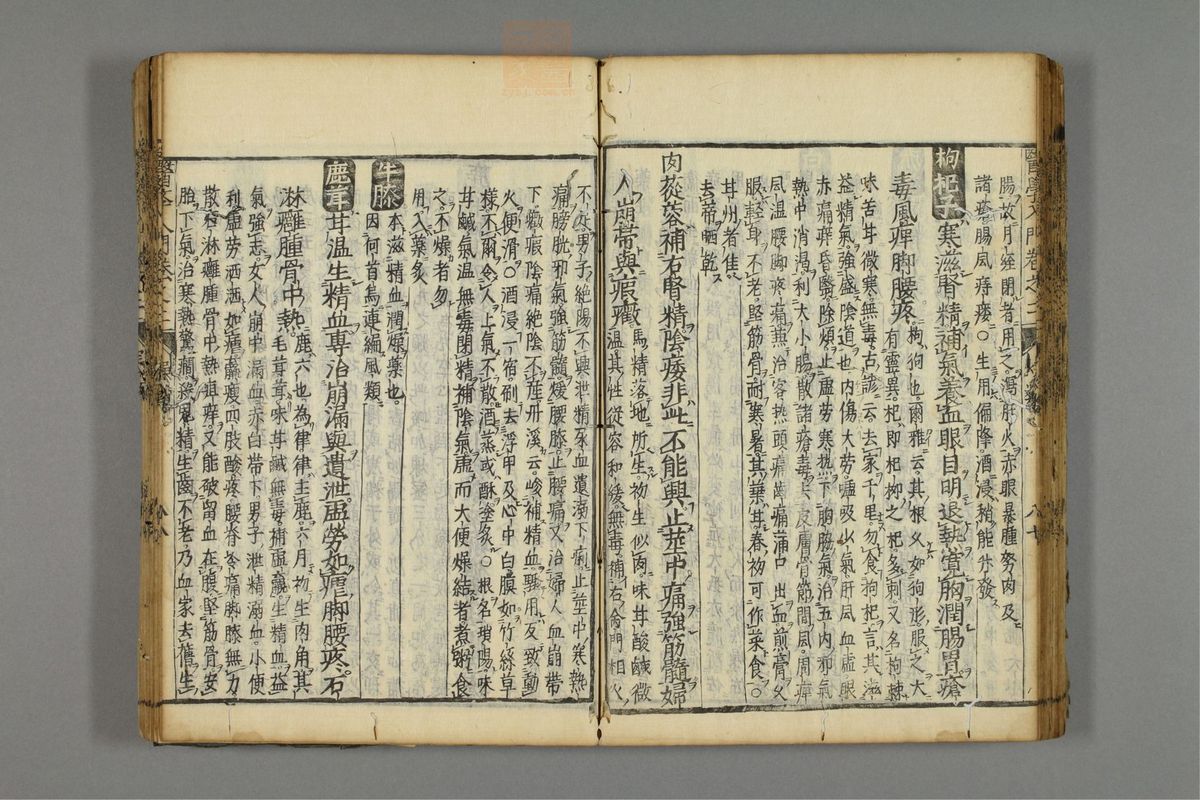 腸故月經閉者用之瀉肝火赤眼暴腫努肉及
諸瘡腸風痔瘻○生用備降酒浸稍能升發
枸杞子寒滋腎精補氣養血眼目明退熱寬胸潤腸胃瘡
毒風痺脚腰疼
枸狗也爾雅云其根义如狗形服之大
有靈異杞即杞柳之杞多刺又名枸棘
味苦甘微寒無毒古諺云去家千里勿食枸杞言其滋
益精氣強盛陰道也內傷大劳嘘吸少氣肝風血虛眼
赤痛痒昏翳除煩止虛劳寒熱下胸脇氣治五內邪氣
熱中消渴利大小腸散諸瘡毒去皮膚骨筋間風周痺
風溫腰胸疼痛兼治客热頭痛齒痛蒲口出血煎膏久
服輕身不老堅筋骨耐寒暑其葉甘春初可作菜食○
甘州者佳
去蒂晒乾
肉蓯蓉補右腎精陰痿非此不能興止莖中痛強筋髓婦
人崩帶與瘕癥
馬精落地所生初生似肉味甘酸鹹微
溫其性從容和緩無毒補右命門相火
不足男子絕陽不興泄精尿血遺瀝下痢止莖中寒熱
痛膀胱邪氣強筋髓煖腰膝止腰痛又治婦人血崩帶
下癥瘕陰痛絕陰不產丹溪云峻補精血驟用反致動
火便滑○酒浸一宿刷去浮甲及心中白膜如竹絲草
樣不爾令人上氣不散酒蒸或酥塗炙○根名瑣陽味
甘鹹氣溫無毒閉精補陰氣虛而大便燥結者煮粥食
之不燥者勿
用入藥炙
牛膝
本滋精血潤燥藥也
因何首烏連編風類
鹿茸甘溫生精血專治崩漏與遺泄虛勞如瘧脚腰疼石
淋癰腫骨中熱
鹿六也為律律主鹿六月初生肉角其
毛茸茸味甘鹹無毒補虛羸生精血益
氣強志女人崩中漏血赤白帶下男子泄精溺血小便
利虛劳洒洒如瘧羸瘦四肢酸疼腰脊冷痛脚膝無力
散石淋癰腫骨中熱疽痒又能破留血在腹堅筋骨安
胎下氣治寒熱驚癇稜風精生齒不老乃血家去舊生